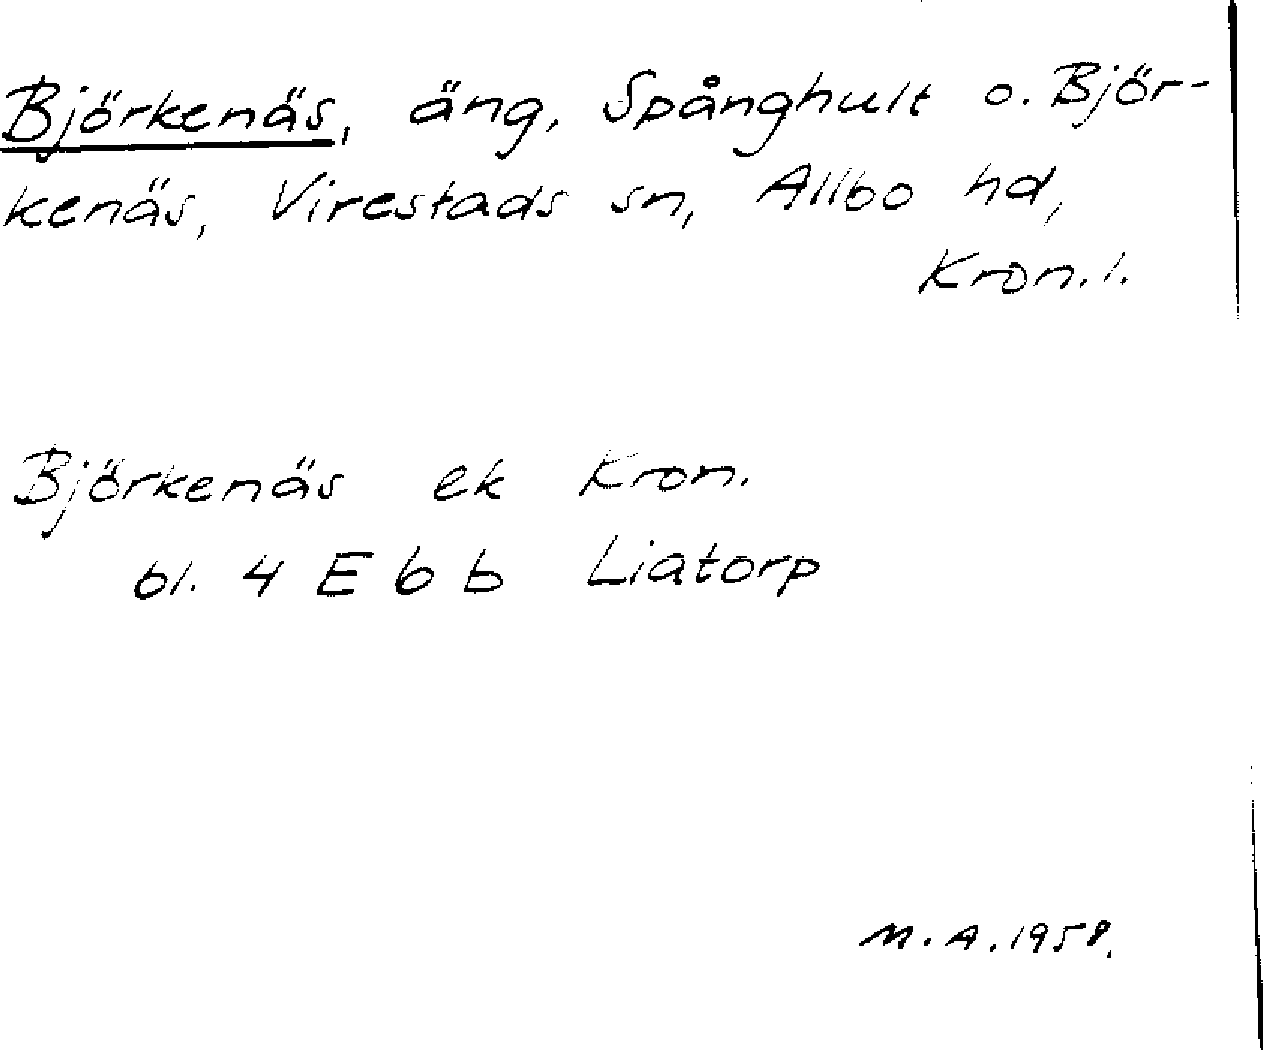 Björkenäs, äng, Spånghult o. Björ-
kenäs, Virestads sn, Allbo hd,
Kron. l.
Björkenäs ek Kron.
bl. 4 E 6 b Liatorp
M. A. 1958.